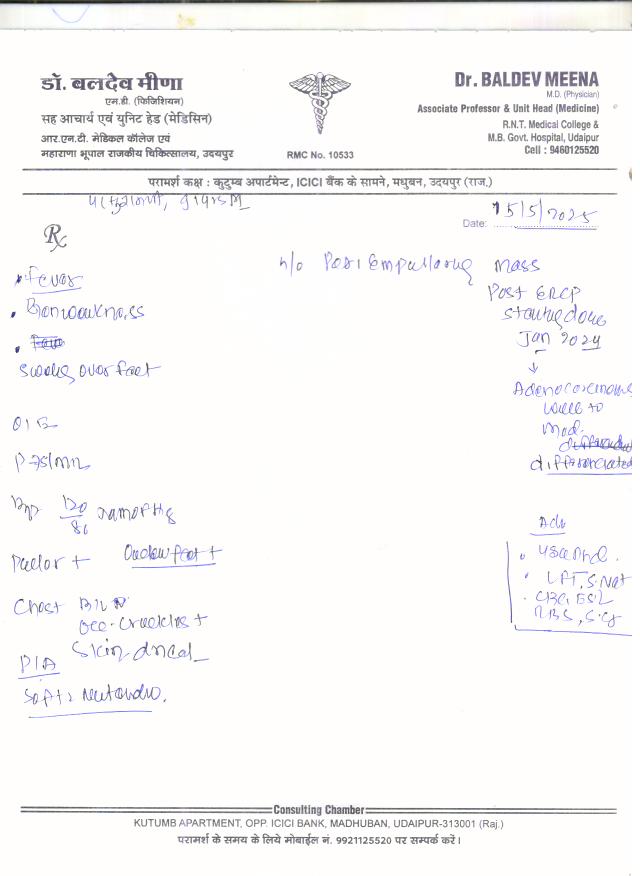 डॉ. बलदेव मीणा
एम.डी. (फिजिशियन)
सह आचार्य एवं युनिट हेड (मेडिसिन)
आर.एन.टी. मेडिकल कॉलेज एवं
महाराणा भूपाल राजकीय चिकित्सालय, उदयपुर
RMC No. 10533
Dr. BALDEV MEENA
M.D. (Physician)
Associate Professor & Unit Head (Medicine)
R.N.T. Medical College &
M.B. Govt. Hospital, Udaipur
Cell : 9460125520
परामर्श कक्ष : कुटुम्ब अपार्टमेन्ट, ICICI बैंक के सामने, मधुबन, उदयपुर (राज.)
Date: 15/5/2025
Rx
Fever
swelling over feet
O/E
P-78/min
BP 120/86 mmHg
Pallor +
Chest B/L
occ. crackles +
P/A
Soft
h/o Mass
Post ERCP
stenting done
Jan 2024
↓
Adenocarcinoma
well to
mod.
differentiated
Adv
LFT, S. Nat
CBC, ESR
RBS, S. Cr
Consulting Chamber
KUTUMB APARTMENT, OPP. ICICI BANK, MADHUBAN, UDAIPUR-313001 (Raj.)
परामर्श के समय के लिये मोबाईल नं. 9921125520 पर सम्पर्क करें।